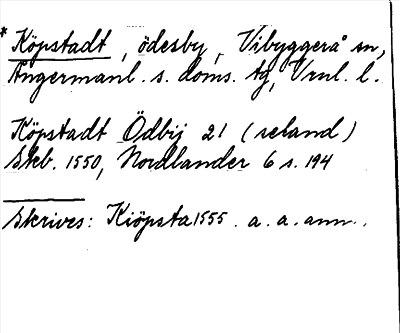 * Köpstadt, ödesby, Vibyggerå sn,
Ångermanl. s. doms. tg, Vrnl. l.
Köpstadt Ödbij 21 (seland)
Skb. 1550, Nordlander 6 s. 194
Skrives: Kiöpsta 1555. a. a. ann..